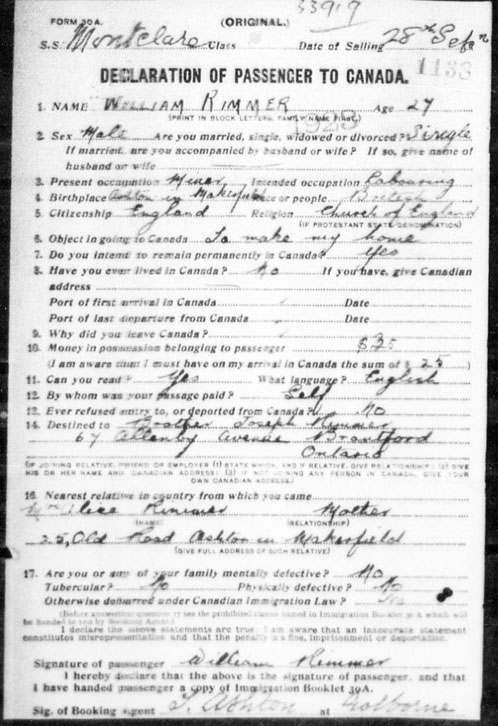 33919
FORM 30A. (ORIGINAL.)
S.S. Montclare Class Date of Sailing 28th Sep
1136
DECLARATION OF PASSENGER TO CANADA.
1. NAME WILLIAM RIMMER Age 27
(PRINT IN BLOCK LETTERS, FAMILY NAME FIRST)
1923
2. Sex Male Are you married, single, widowed or divorced? Single
If married, are you accompanied by husband or wife? If so, give name of
husband or wife
3. Present occupation Miner Intended occupation Labouring
4. Birthplace Ashton in Makerfield Race or people British
5. Citizenship England Religion Church of England
(IF PROTESTANT STATE DENOMINATION)
6. Object in going to Canada To make my home
7. Do you intend to remain permanently in Canada? Yes
8. Have you ever lived in Canada? No If you have, give Canadian
address
Port of first arrival in Canada Date
Port of last departure from Canada Date
9. Why did you leave Canada?
10. Money in possession belonging to passenger
(I am aware that I must have on my arrival in Canada the sum of $ 25)
11. Can you read? Yes What language? English
12. By whom was your passage paid? Self
13. Ever refused entry to, or deported from Canada? No
14. Destined to Brother Joseph Rimmer
67 Allenby Avenue Brantford
Ontario
(IF JOINING RELATIVE, FRIEND OR EMPLOYER (1) STATE WHICH, AND IF RELATIVE, GIVE RELATIONSHIP; (2) GIVE
HIS OR HER NAME AND CANADIAN ADDRESS; (3) IF NOT JOINING ANY PERSON IN CANADA, GIVE YOUR
OWN CANADIAN ADDRESS)
Nearest relative in country from which you came
Mrs Alice Rimmer Mother
(NAME) (RELATIONSHIP)
Old Road Ashton in Makerfield
(GIVE FULL ADDRESS OF SUCH RELATIVE)
17. Are you or any of your family mentally defective? No
Tubercular? No Physically defective? No
Otherwise debarred under Canadian Immigration Law? No
(Before answering question 17 see the prohibited classes named in Immigration Booklet 30A which will
be handed to you by Booking Agent.)
I declare the above statements are true. I am aware that an inaccurate statement
constitutes misrepresentation and that the penalty is a fine, imprisonment or deportation.
Signature of passenger William Rimmer
I hereby declare that the above is the signature of passenger, and that
I have handed passenger a copy of Immigration Booklet 30A.
Sig. of Booking Agent Ashton at Golborne